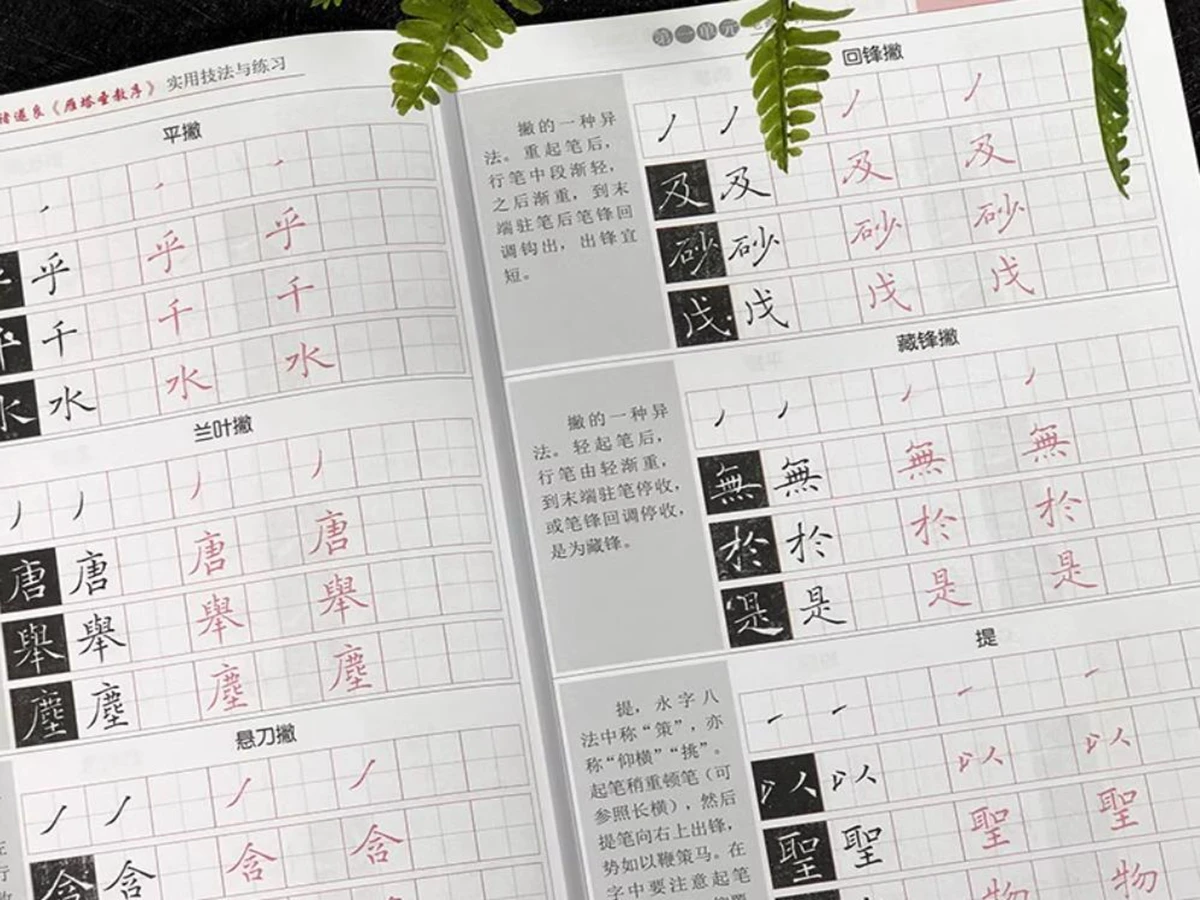 褚遂良《雁塔圣教序》 实用技法与练习
平撇
乎 乎 乎
千 千 千
水 水 水 水
兰叶撇
唐 唐 唐 唐
舉 舉 舉 舉
塵 塵 塵 塵
悬刀撇
含 含 含 含
第一单元
回锋撇
撇的一种异
法。重起笔后，
行笔中段渐轻，
之后渐重，到末
端驻笔后笔锋回
调钩出，出锋宜
短。
及 及 及 及
砂 砂 砂 砂
戊 戊 戊 戊
藏锋撇
撇的一种异
法。轻起笔后，
行笔由轻渐重，
到末端驻笔停收，
或笔锋回调停收，
是为藏锋。
無 無 無 無
於 於 於 於
是 是 是 是
提
提，永字八
法中称“策”，亦
称“仰横”“挑”。
起笔稍重顿笔（可
参照长横），然后
提笔向右上出锋，
势如以鞭策马。在
字中要注意起笔
以 以 以 以
聖 聖 聖 聖
物 物